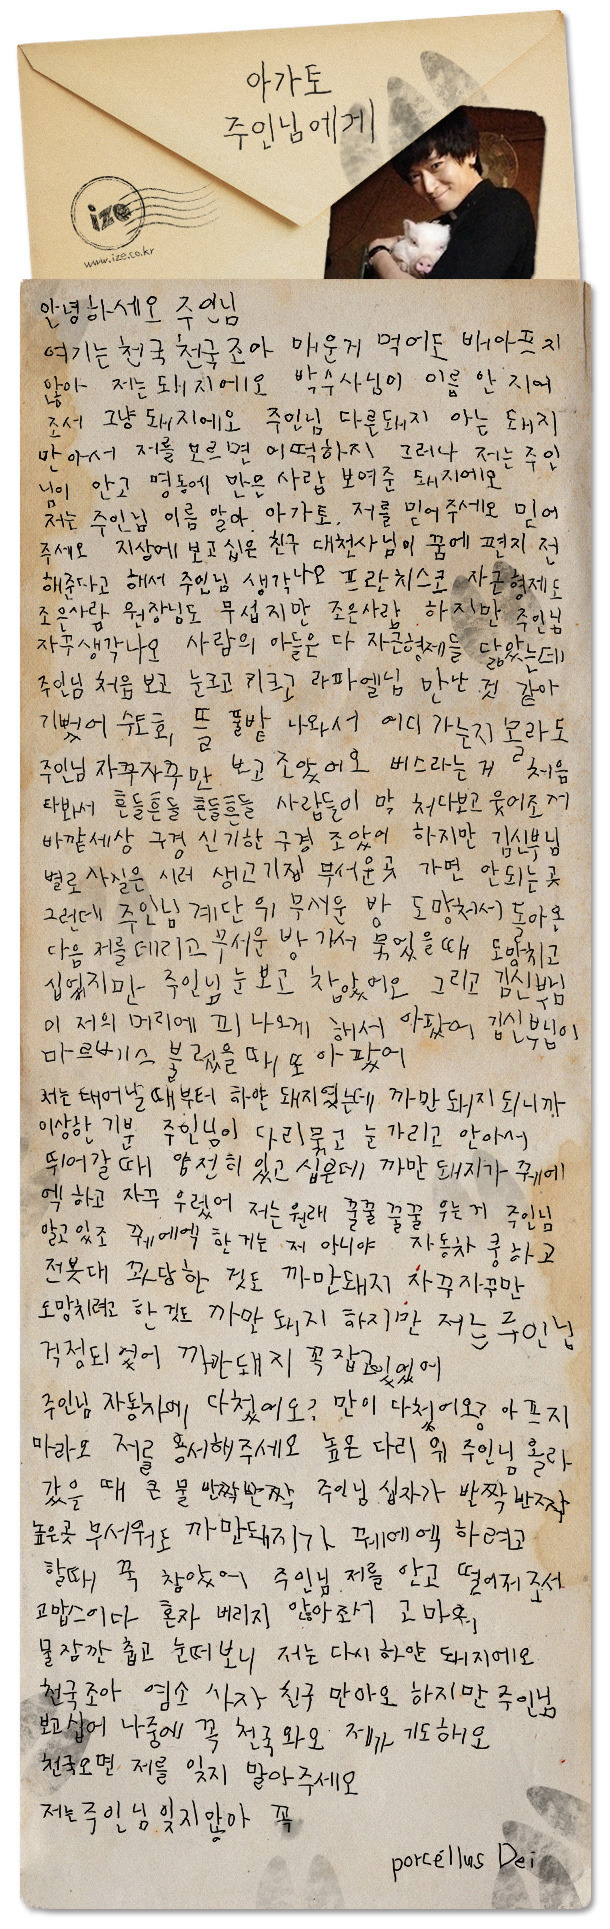 아가토
주인님에게
ize
www.ize.co.kr
안녕하세오 주인님
여기는 천국 천국 조아 매운거 먹어도 배아프지
않아 저는 돼지에오 박수사님이 이름 안 지어
조서 그냥 돼지에오 주인님 다른돼지 아는 돼지
만아서 저를 모르면 어떡하지 그러나 저는 주인
님이 안고 명동에 만은 사람 보여준 돼지에오
저는 주인님 이름 알아. 아가토. 저를 믿어주세오 믿어
주세오 지상에 보고십은 친구 대천사님이 꿈에 편지 전
해준다고 해서 주인님 생각나오 프란치스코 자근형제도
조은사람 원장님도 무섭지만 조은사람 하지만 주인님
자꾸생각나오 사람의 아들은 다 자근형제들 닮았는데
주인님 처음 보고 눈크고 키크고 라파엘님 만난 것 같아
기뻤어 수도회, 뜰 풀밭 나와서 어디 가는지 몰라도
주인님 자꾸자꾸만 보고 조았어오 버스라는 거 처음
타봐서 흔들흔들 흔들흔들 사람들이 막 처다보고 웃어조서
바깥세상 구경 신기한 구경 조았어 하지만 김신부님
별로 사실은 시러 생고기집 무서운곳 가면 안되는곳
그런데 주인님 계단 위 무서운 방 도망처서 돌아온
다음 저를 데리고 무서운 방 가서 묶었을때 도망치고
십었지만 주인님 눈 보고 참았어오 그리고 김신부님
이 저의 머리에 피 나오게 해서 아팠어 김신부님이
마르바스 불렀을 때 또 아팠어
저는 태어날때부터 하얀 돼지였는데 까만 돼지 되니까
이상한 기분 주인님이 다리묶고 눈가리고 안아서
뛰어갈 때 얌전히 있고 십은데 까만 돼지가 꿰에
엑 하고 자꾸 우렀어 저는 원래 꿀꿀 꿀꿀 우는거 주인님
알고있조 꿰에엑 한 거는 저 아니야 자동차 쿵하고
전봇대 꽈당한 것도 까만돼지 자꾸자꾸만
도망치려고 한 것도 까만 돼지 하지만 저는 주인님
걱정되었어 까만돼지 꼭잡고있었어
주인님 자동차에 다쳤어오? 만이 다쳤어오? 아프지
마라오 저를 용서해주세오 높은 다리 위 주인님 올라
갔을 때 큰 물 반짝반짝 주인님 십자가 반짝반짝
높은곳 무서워도 까만돼지가 꿰에엑 하려고
할때 꾹 참았어 주인님 저를 안고 떨어저 조서
고맙스이다 혼자 버리지 않아조서 고마워
물 잠깐 춥고 눈떠보니 저는 다시 하얀 돼지에오
천국조아 염소 사자 친구 만아오 하지만 주인님
보고십어 나중에 꼭 천국와오 제가 기도해오
천국오면 저를 잊지 말아주세오
저는 주인님 잊지않아 꼭
porcéllus Dei